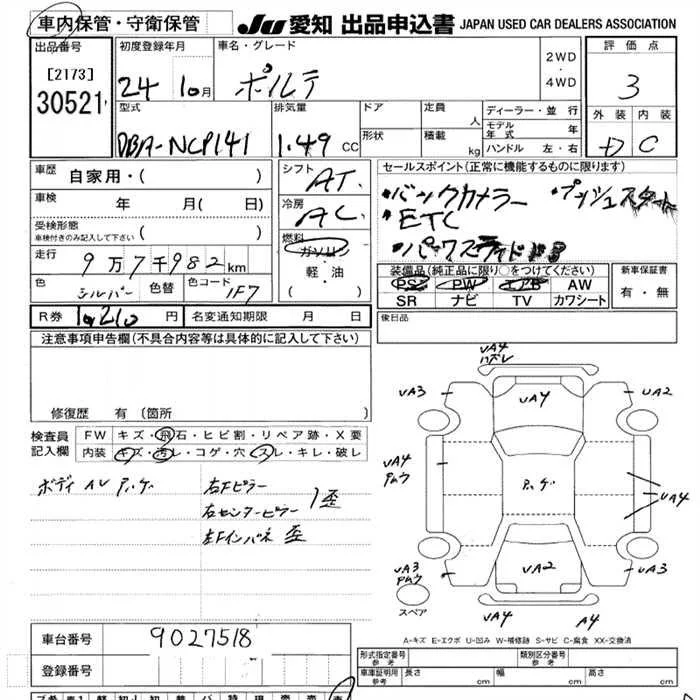 車内保管・守衛保管
JU 愛知 出品申込書 JAPAN USED CAR DEALERS ASSOCIATION
出品番号
[2173]
30521
初度登録年月
24 10月
車名・グレード
ポルテ
2WD
・
4WD
評価点
3
外装 内装
D C
型式
DBA-NCP141
排気量
1.49 CC
ドア
形状
定員 人
積載 kg
ディーラー・並行
モデル年式 年
ハンドル 左・右
車歴 自家用・( )
車検 年 月( 日)
受検形態
車検付きのみ記入して下さい ( )
走行 9万7千982km
色 シルバー 色替 色コード 1F7
シフト AT
冷房 AC
燃料
ガソリン
軽・油
( )
セールスポイント(正常に機能するものに限ります)
・バックカメラー ・プッシュスタート
・ETC
装備品(純正品に限り○をつけてください)
PS PW エアB AW
SR ナビ TV カワシート
新車保証書
有・無
R券 10,210円 名変通知期限 月 日
後日品
注意事項申告欄(不具合内容等は具体的に記入して下さい)
修復歴 有(箇所 )
検査員
記入欄
FW キズ・飛石・ヒビ割・リペア跡・X要
内装 キズ・汚レ・コゲ・穴・スレ・キレ・破レ
ボディ AU P.ゲ 右Fピラー
右センターピラー 歪
左Fインパネ 歪
UA4
UA3 UA4 UA2
UA4
P.ゲ
UA4
UA3 UA2 UA3
スペア
UA4 A4
A-キズ E-エクボ U-凹み W-補修跡 S-サビ C-腐食 XX-交換済
車台番号 9027518
登録番号
形式指定番号
参考
類別区分番号
参考
車庫証明用
参考
長さ cm 幅 cm 高さ cm